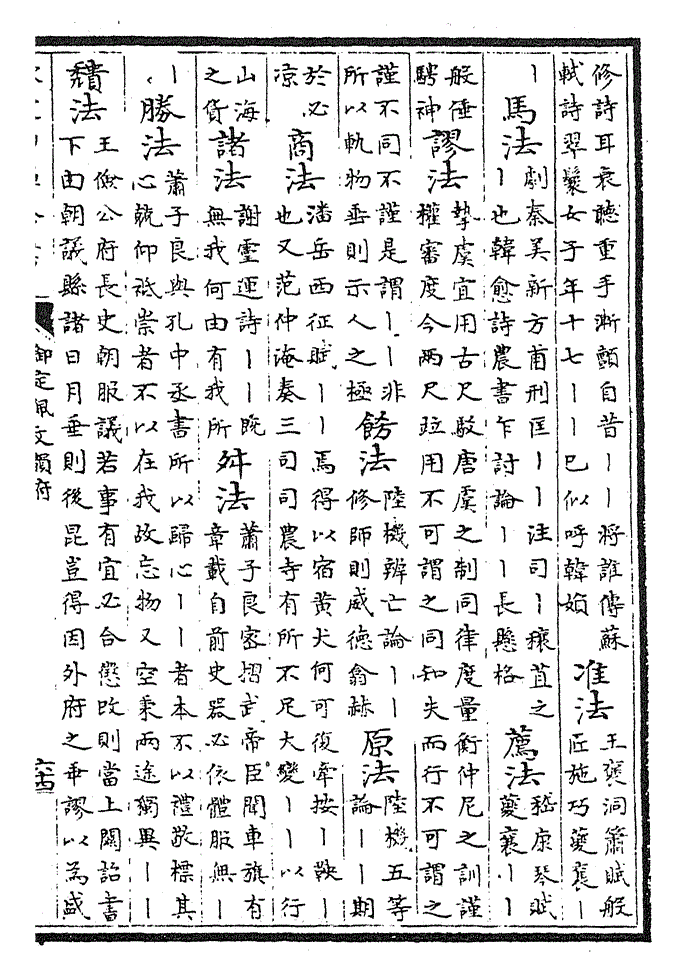 修詩耳衰聽重手漸顫自昔丨丨將誰傳蘇
軾詩翠鬟女子年十七丨丨已似呼韓媍
准法
王褒洞簫賦般
匠施巧夔襄丨
丨
馬法
劇秦美新方甫刑匡丨丨注司丨穰苴之
丨也韓愈詩農書乍討論丨丨長懸格
薦法
嵇康琴賦
夔襄丨丨
般倕
騁神
謬法
摯虞宜用古尺駮唐虞之制同律度量衡仲尼之訓謹
權審度今兩尺竝用不可謂之同知失而行不可謂之
謹不同不謹是謂丨丨非
所以軌物垂則示人之極
餝法
陸機辨亡論丨丨
修師則威德翕赫
原法
陸機五等
論丨丨期
於必
涼
商法
潘岳西征賦丨丨焉得以宿黃犬何可復牽按丨鞅丨
也又范仲淹奏三司司農寺有所不足大變丨丨以行
山海
之貨
諸法
謝靈運詩丨丨既
無我何由有我所
舛法
蕭子良密摺武帝臣聞車旗有
章載自前史器必依體服無丨
丨
勝法
蕭子良與孔中丞書所以歸心丨丨者本不以禮敬標其
心兢仰祇崇者不以在我故忘物又空秉兩途獨異丨丨
穨法
王儉公府長史朝服議若事有宜必合懲改則當上關詔書
下由朝議縣諸日月垂則後昆豈得因外府之乖謬以為盛
御定佩文韻府